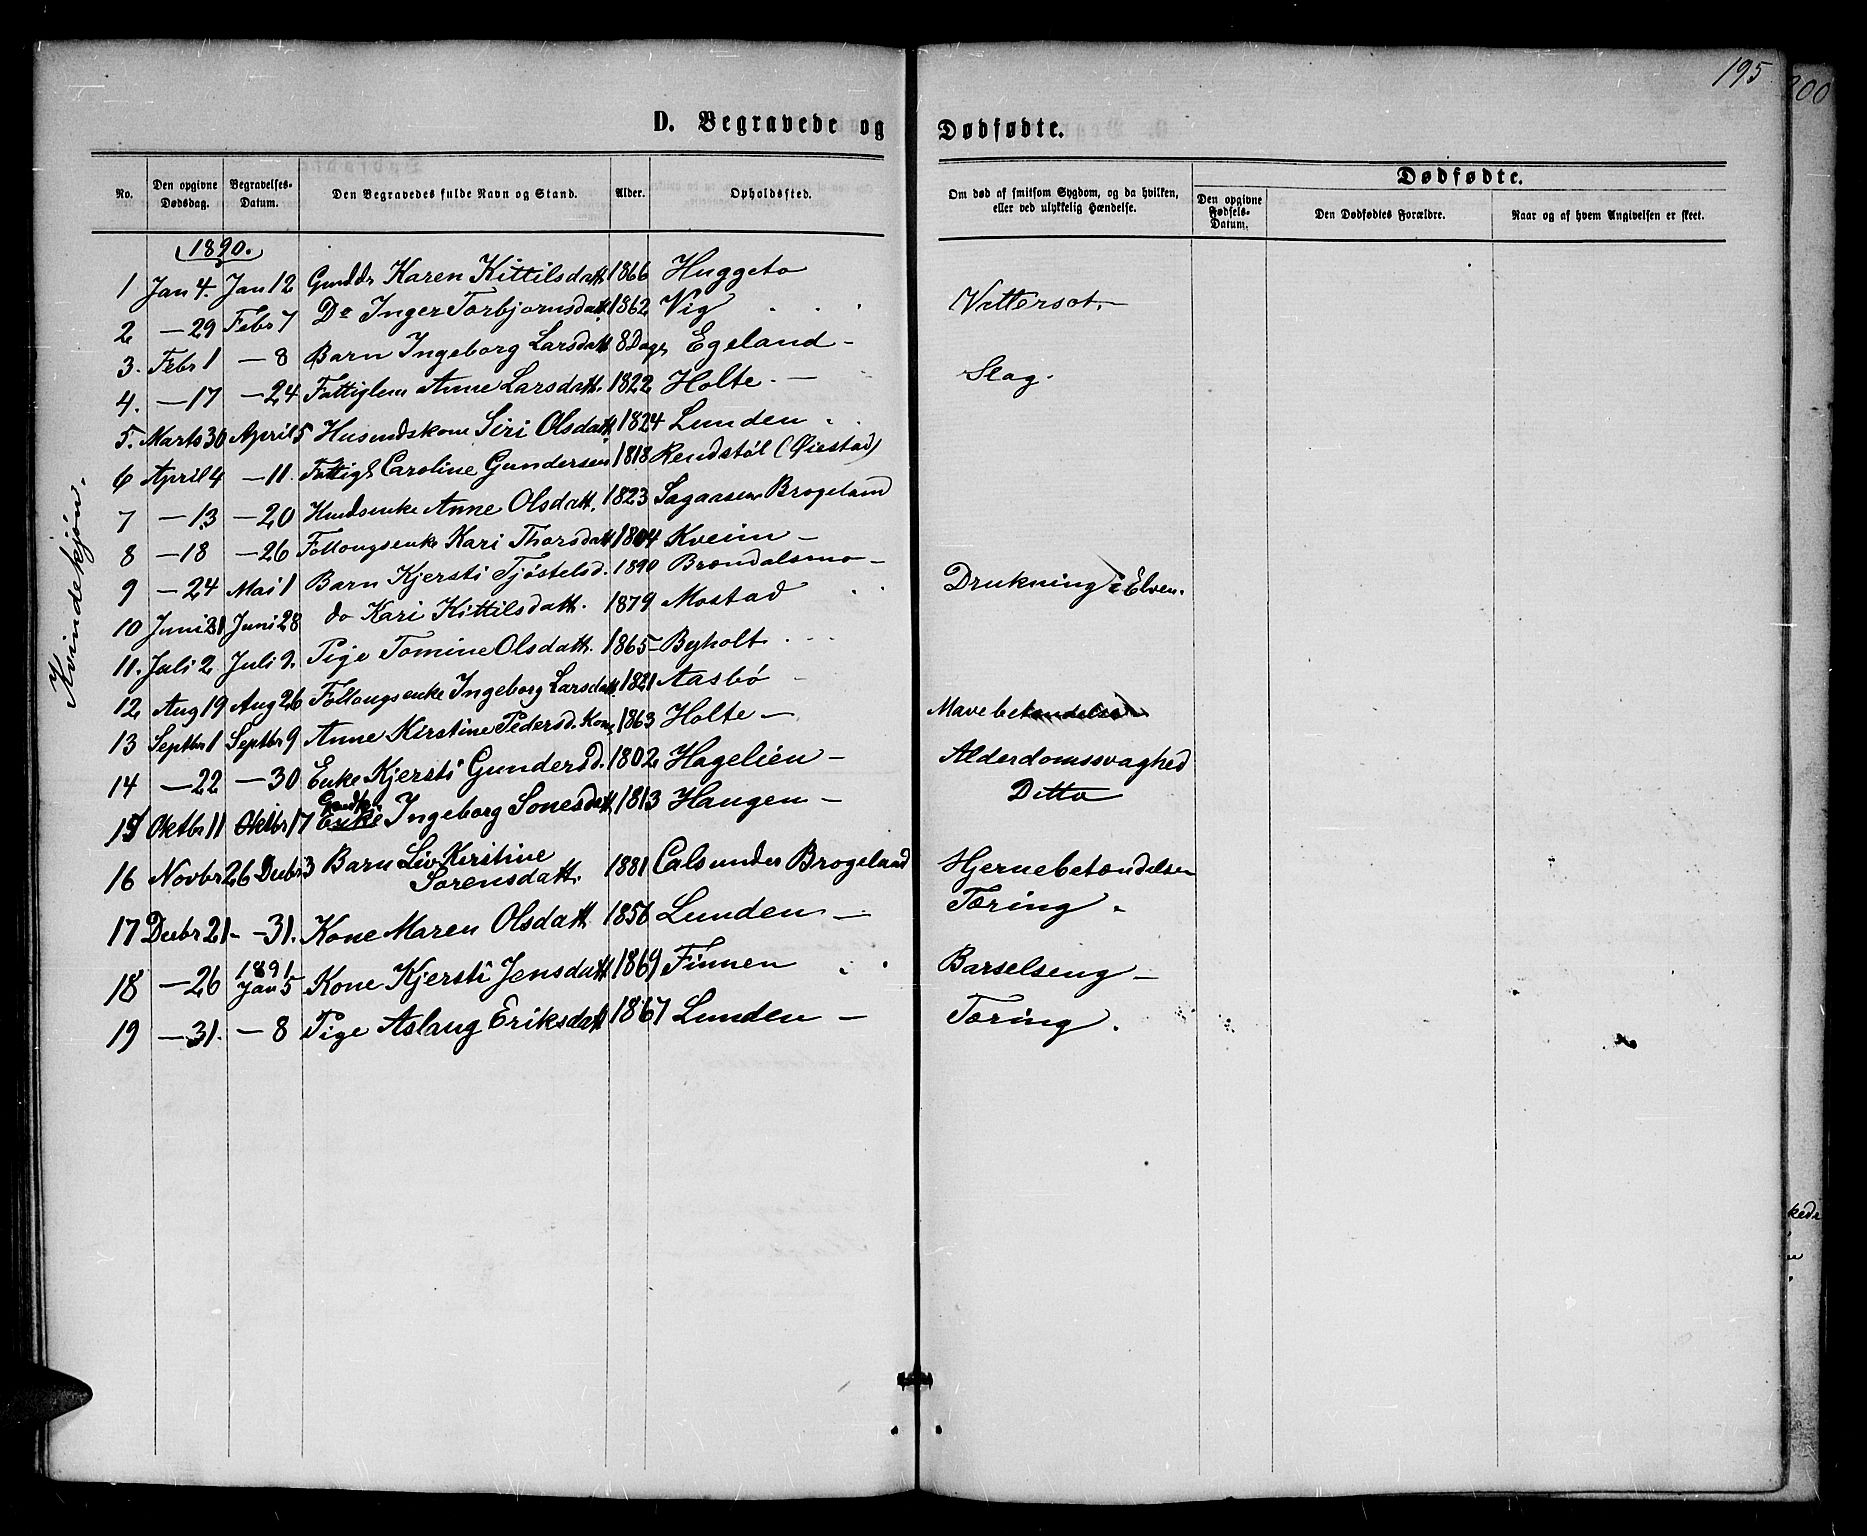 195
200
D. Begravede og Dødfødte.
No. Den opgivne Dødsdag. Begravelses-Datum. Den Begravedes fulde Navn og Stand. Alder. Opholdssted. Om død af smitsom Sygdom, og da hvilken, eller ved ulykkelig Hændelse. Dødfødte.
Den opgivne Fødsels-Datum. Den Dødfødtes Forældre. Naar og af hvem Angivelsen er skeet.
Kvindekjøn.
1890.
1 Jan 4. Jan 12 Karen Kittilsdatt. 1866 Huggeto
2 — 29 Febr 7 Do Inger Torbjornsdatt. 1862 Vig Vattersot.
3. Febr 1 — 8 Barn Ingeborg Larsdatt 8 Dage Egeland —
4. — 17 — 24 Fattiglem Anne Larsdatt. 1822 Holte. — Slag.
5. Marts 30 April 5 Husmdskone Siri Olsdatt. 1824 Lunden
6 April 4 — 11. Fattigl Caroline Gundersen 1818 Rendstöl (Øiestad)
7 — 13 — 20 Anne Olsdatt. 1823 Sagaasen Brogeland
8 — 18 — 26 Kari Thorsdatt 1804 Kveim —
9 — 24 Mai 1 Barn Kjersti Tjöstelsd. 1890 Brændalsmo —
10 Juni 21 Juni 28 do Kari Kittilsdatt. 1879 Mostad Drukning i Elven.
11. Juli 2 Juli 9. Pige Tomine Olsdatt. 1865 — Byholt
12 Aug 19 Aug 26 Ingeborg Larsdatt. 1821 Aasbø
13 Septbr 1 Septbr 9 Anne Kirstine Pedersd. Kone 1863 Holte — Mavebetændelse
14 — 22 — 30 Enke Kjersti Gundersd. 1802 Hagelien — Alderdomssvaghed
15 Oktbr 11 Oktbr 17 Enke Ingeborg Sonesdatt. 1813 Haugen — Ditto
16 Novbr 26 Decbr 3 Barn Liv Kirstine Sorensdatt. 1881 Cals under Brogeland Hjernebetændelse
17 Decbr 21 — — 31. Kone Maren Olsdatt 1856 Lunden — Tæring.
18 — 26 1891 Jan 5 Kone Kjersti Jensdatt 1869 Finnen Barselseng —
19 — 31. — 8 Pige Aslaug Eriksdatt 1867 Lunden — Tæring.